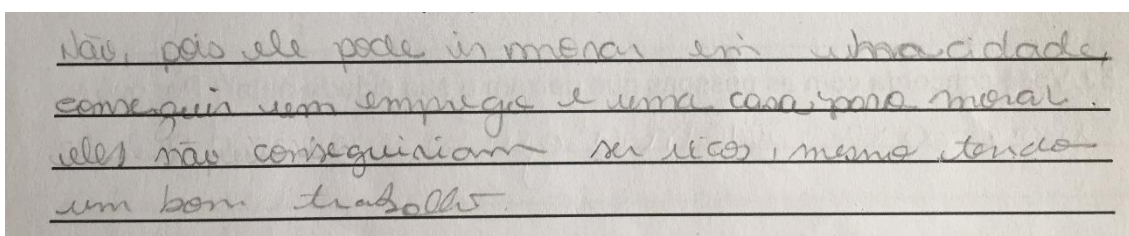 Não, pois ele pode ir morar em uma cidade,
conseguir um emprego e uma casa, para morar.
eles não conseguiriam ser ricos, mesmo tendo
um bom trabalho.